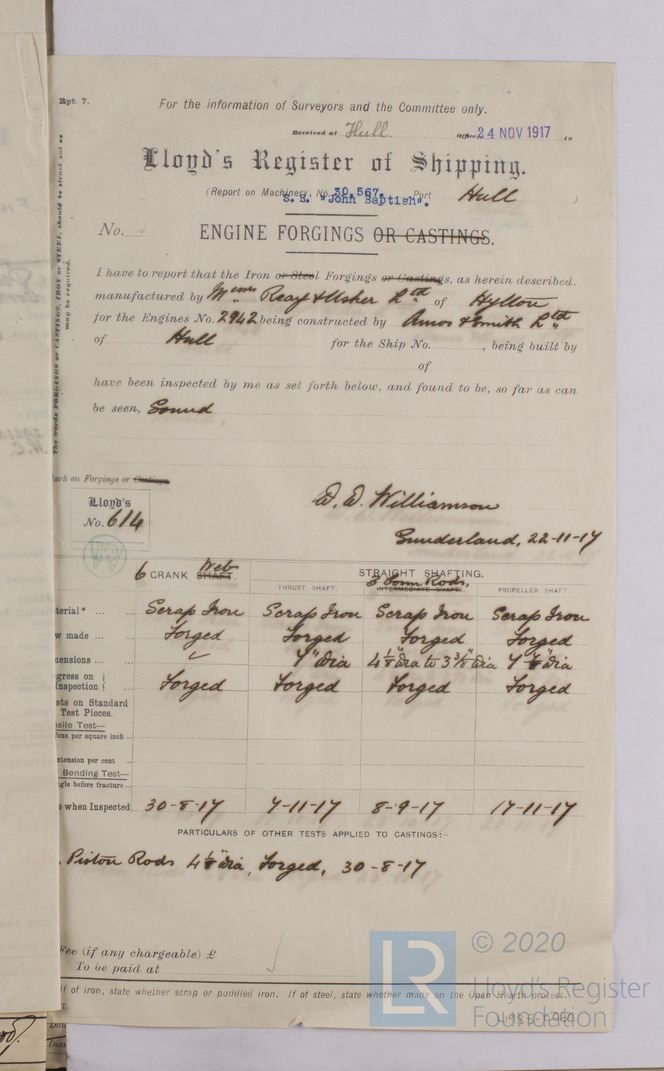 Rpt. 7.
For the information of Surveyors and the Committee only.
Received at Hull Office 24 NOV 1917
Lloyd's Register of Shipping.
(Report on Machinery, No. 30,567. Port Hull )
S.S. "John Baptish".
No.
ENGINE FORGINGS OR CASTINGS.
I have to report that the Iron or Steel Forgings or Castings, as herein described,
manufactured by Messrs Reay & Usher Ltd of Hylton
for the Engines No. 2942 being constructed by Amos & Smith Ltd
of Hull for the Ship No. , being built by
of
have been inspected by me as set forth below, and found to be, so far as can
be seen, Sound
The words FORGINGS or CASTINGS, IRON or STEEL, should be struck out as
may be required.
ark on Forgings or Castings.
Lloyd's
No. 614
W. D. Williamson
Sunderland, 22-11-17
6 CRANK Web SHAFT. STRAIGHT SHAFTING.
THRUST SHAFT. INTERMEDIATE SHAFT. Rods, PROPELLER SHAFT.
terial* ... Scrap Iron Scrap Iron Scrap Iron Scrap Iron
w made ... Forged Forged Forged Forged
mensions ... 7" dia 4 1/8" dia to 3 3/8" dia
gress on
Inspection Forged Forged Forged Forged
sts on Standard
Test Pieces.
sile Test—
ons per square inch ...
xtension per cent
Bending Test—
gle before fracture ...
s when Inspected 30-8-17 7-11-17 8-9-17 17-11-17
PARTICULARS OF OTHER TESTS APPLIED TO CASTINGS:—
Piston Rods 4 1/8" dia, Forged, 30-8-17
Fee (if any chargeable) £
To be paid at
If of iron, state whether scrap or puddled iron. If of steel, state whether made on the Open Hearth process.
LR
© 2020
Lloyd's Register
Foundation